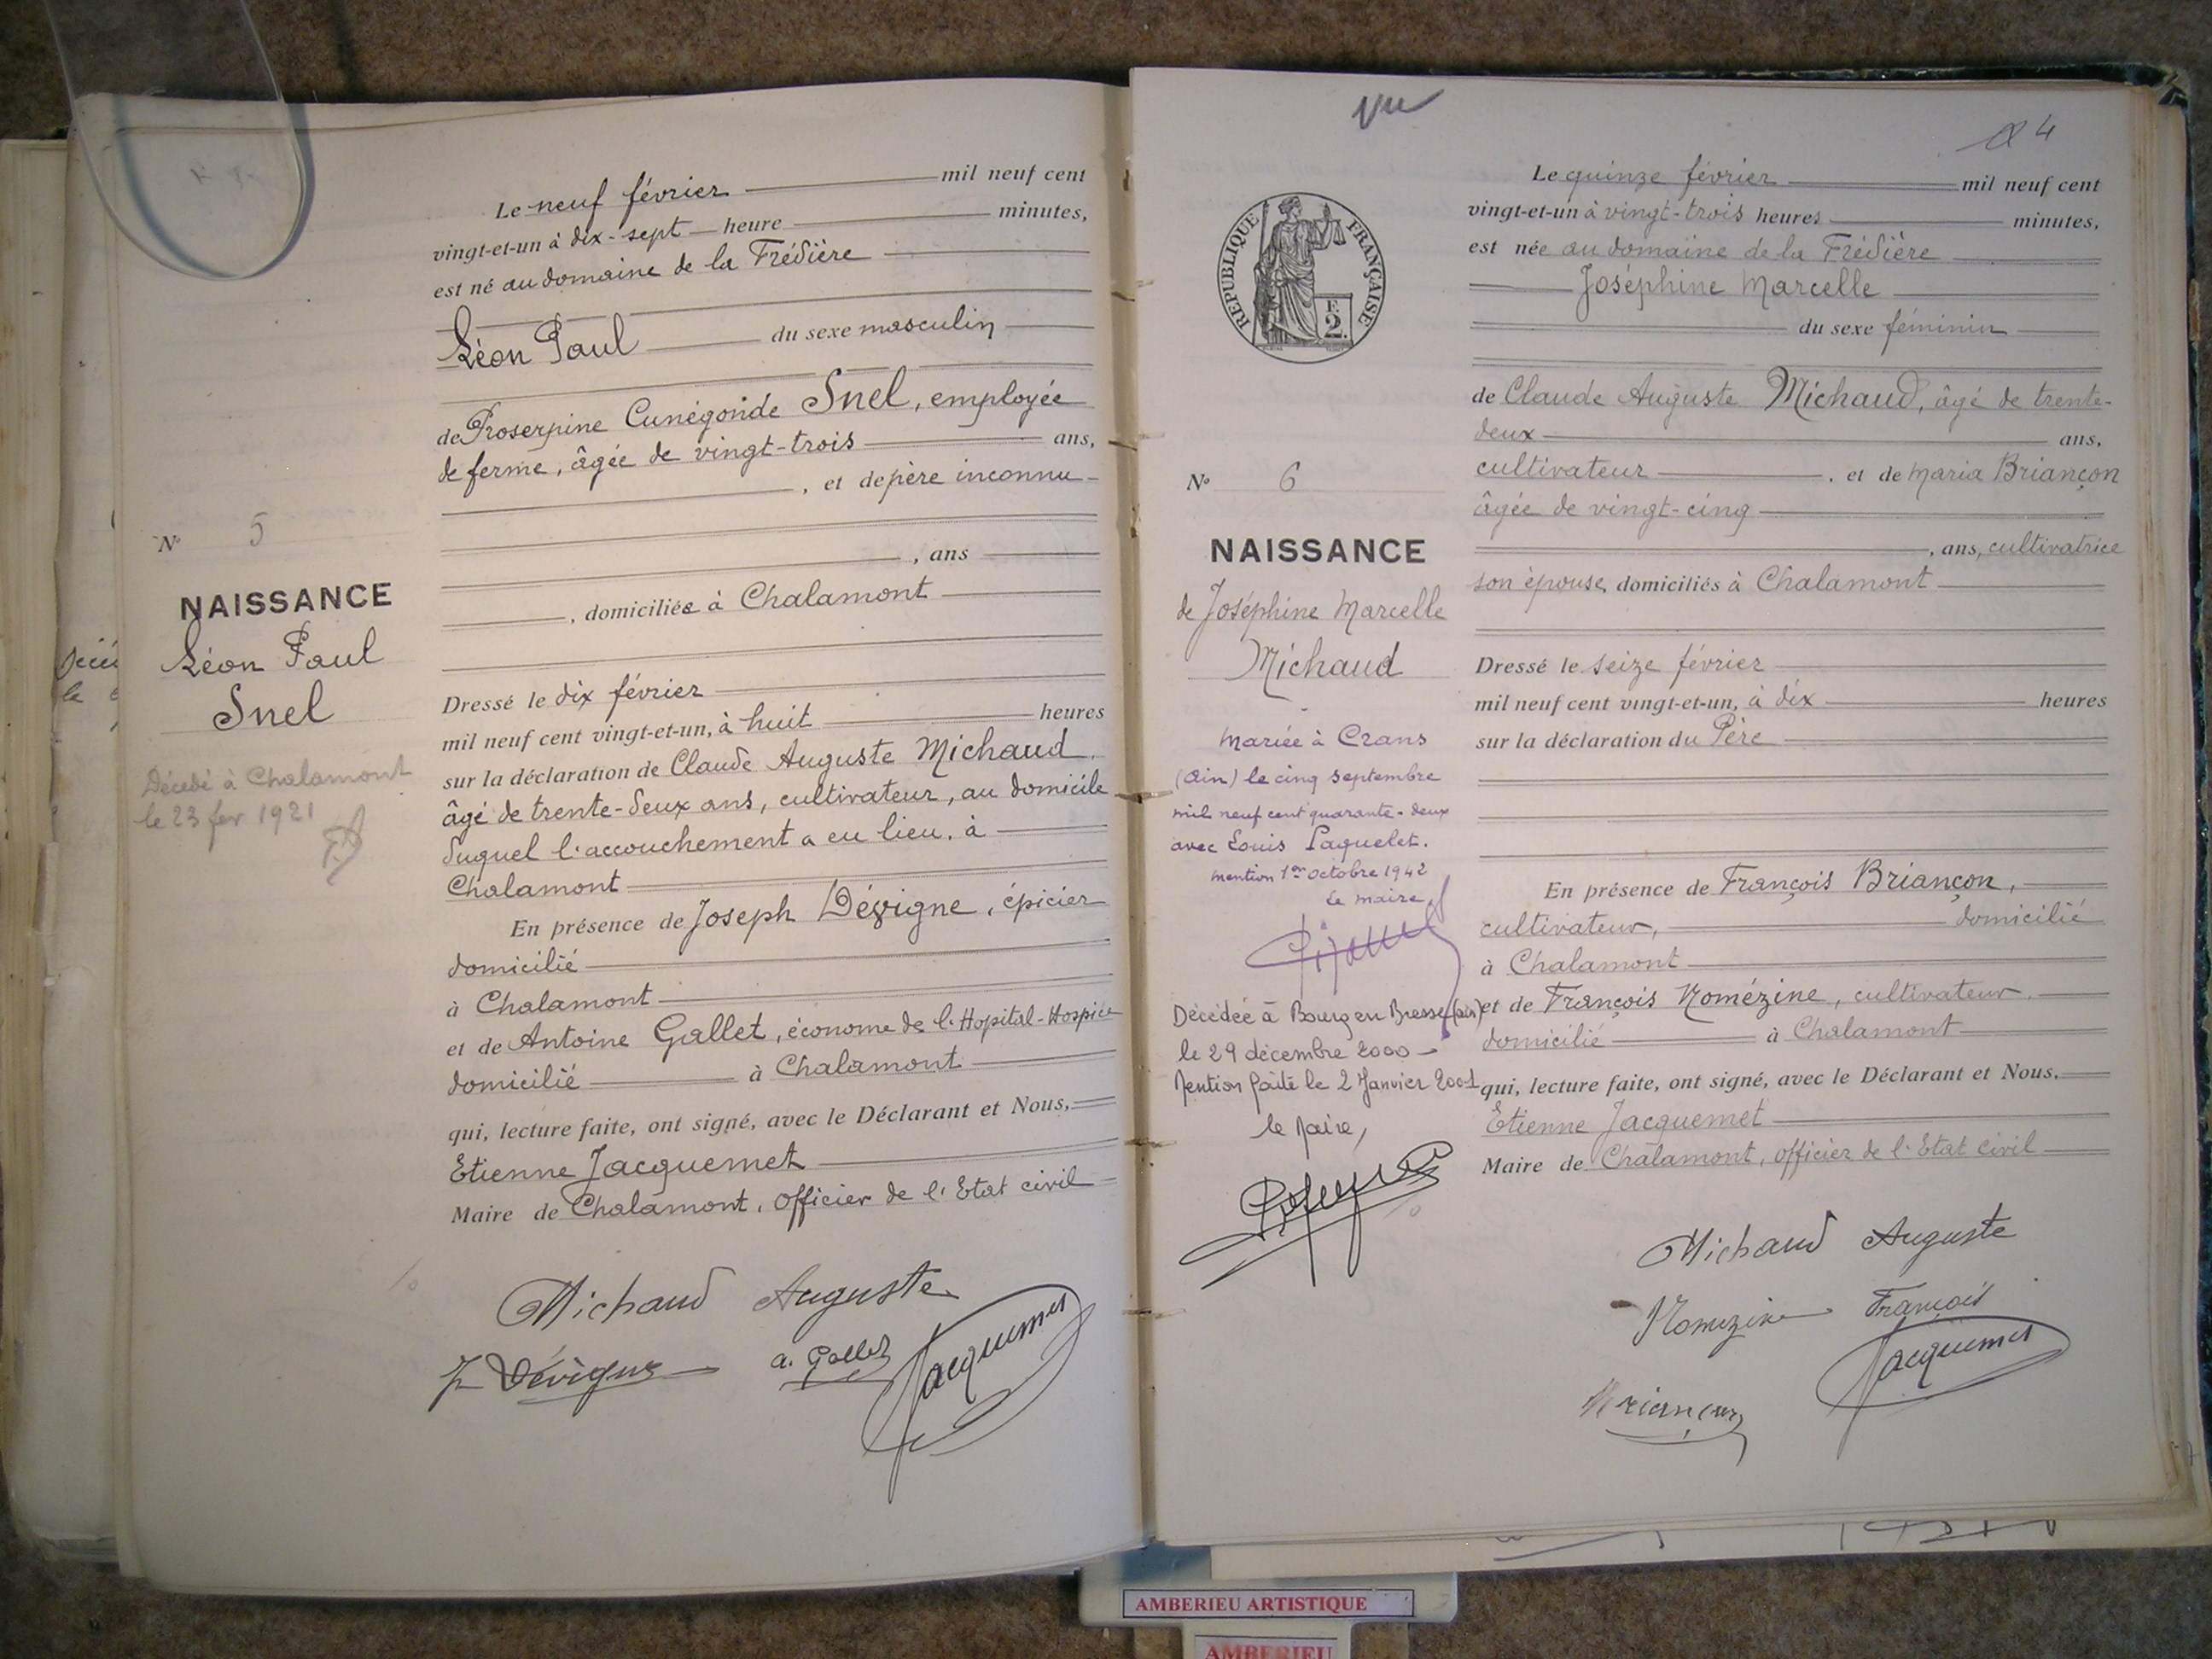 Le neuf février mil neuf cent
vingt-et-un à dix-sept heure minutes,
est né au domaine de la Frédière
Léon Paul du sexe masculin
de Proserpine Cunégonde Snel, employée
de ferme, âgée de vingt-trois ans,
, et de père inconnu
, ans
, domiciliée à Chalamont
N° 5
NAISSANCE
Léon Paul
Snel
Décédé à Chalamont
le 23 fev 1921
Dressé le dix février
mil neuf cent vingt-et-un, à huit heures
sur la déclaration de Claude Auguste Michaud,
âgé de trente-deux ans, cultivateur, au domicile
duquel l'accouchement a eu lieu, à
Chalamont
En présence de Joseph Dévigne, épicier
domicilié
à Chalamont
et de Antoine Gallet, économe de l'Hopital-Hospice
domicilié à Chalamont
qui, lecture faite, ont signé, avec le Déclarant et Nous,
Etienne Jacquemet
Maire de Chalamont, officier de l'Etat civil
Michaud Auguste
J Dévigne a. Gallet Jacquemet
vu
4
REPUBLIQUE FRANÇAISE
F.
2.
N° 6
NAISSANCE
de Joséphine Marcelle
Michaud
Mariée à Crans
(Ain) le cinq septembre
mil neuf cent quarante-deux
avec Louis Paquelet.
mention 1er octobre 1942
Le maire,
Décédée à Bourg en Bresse (ain)
le 29 décembre 2000
Mention faite le 2 Janvier 2001
le Maire,
Le quinze février mil neuf cent
vingt-et-un à vingt-trois heures minutes,
est née au domaine de la Frédière
Joséphine Marcelle
du sexe féminin
de Claude Auguste Michaud, âgé de trente-
deux ans,
cultivateur , et de Maria Briançon
âgée de vingt-cinq
, ans, cultivatrice
son épouse, domiciliés à Chalamont
Dressé le seize février
mil neuf cent vingt-et-un, à dix heures
sur la déclaration du Père
En présence de François Briançon,
cultivateur, domicilié
à Chalamont
et de François Nomézine, cultivateur
domicilié à Chalamont
qui, lecture faite, ont signé, avec le Déclarant et Nous,
Etienne Jacquemet
Maire de Chalamont, officier de l'Etat civil
Michaud Auguste
François
Jacquemet
AMBERIEU ARTISTIQUE
AMBERIEU